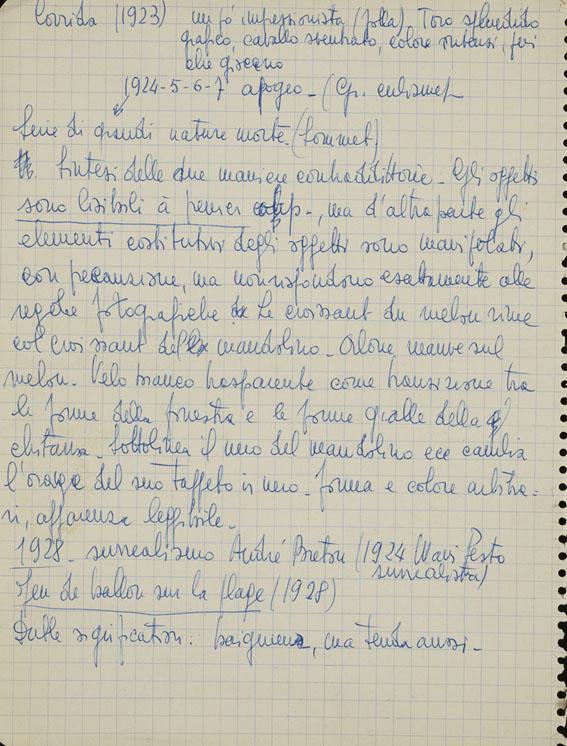 Corrida (1923) un pò impressionista (folla). Toro splendido
grafico, cavallo sventrato, colore intensi, più
che greceno
1924-5-6-7 apogeo - (Cp.
Serie di grandi nature morte. (Sommet)
Sintesi delle due maniere contraddittorie - Gli oggetti
sono lisibili à premier , ma d'altra parte gli
elementi costitutivi degli oggetti sono manipolati,
con precausione, ma non rispondono esattamente alle
regole fotografiche Le croissant du melon rime
col croissant del mandolino. Alone mauve sul
melon. Velo bianco trasparente come transizione tra
le forme della finestra e le forme gialle della
chitarra. Sottolinea il nero del mandolino ecc cambia
l'orange del suo tappeto in nero. forma e colore arbitra-
ri, apparenza leggibile.
1928. surrealismo André Breton (1924 Manifesto
surrealista)
Jeu de ballon sur la plage (1928)
Duble signification: baigneuse, ma tenda aussi -